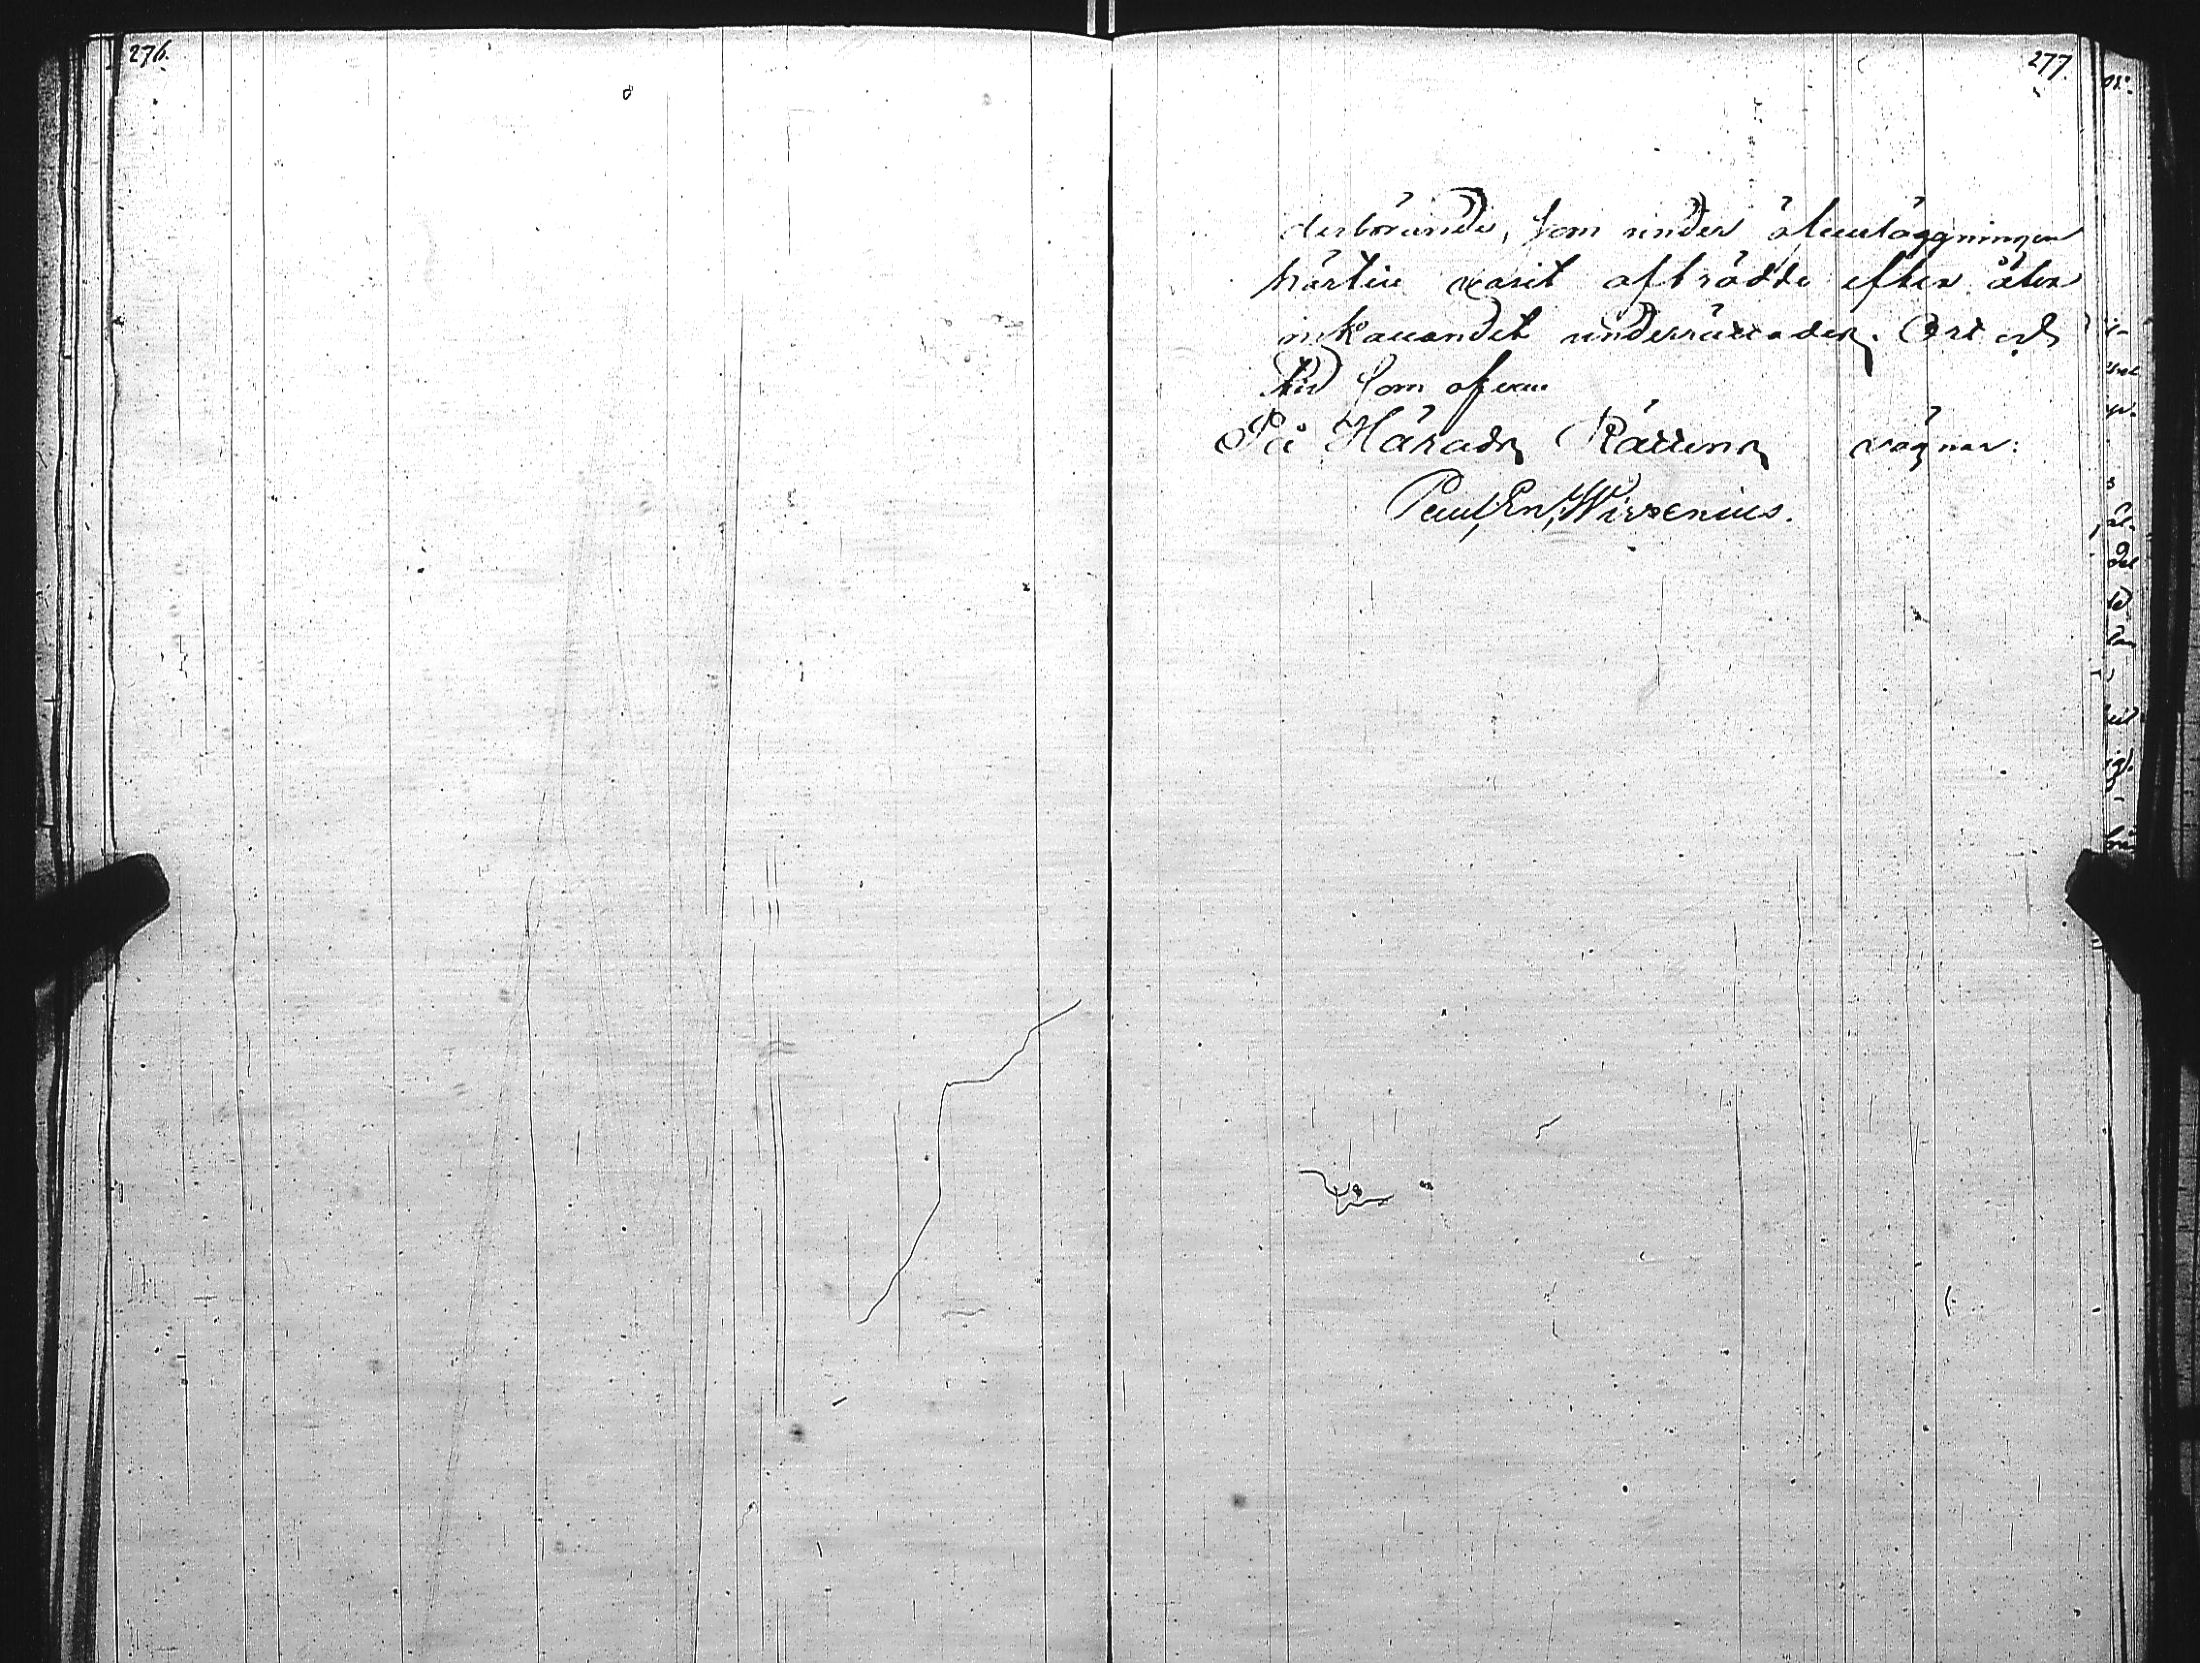 276.
277.
derbörande, som under öfverläggningen
härtill varit afträdde efter åter
inkallandet underrättades. Ort och
tid som ofvan
På Härads Rättens vägnar:
Paul En Wirzenius.